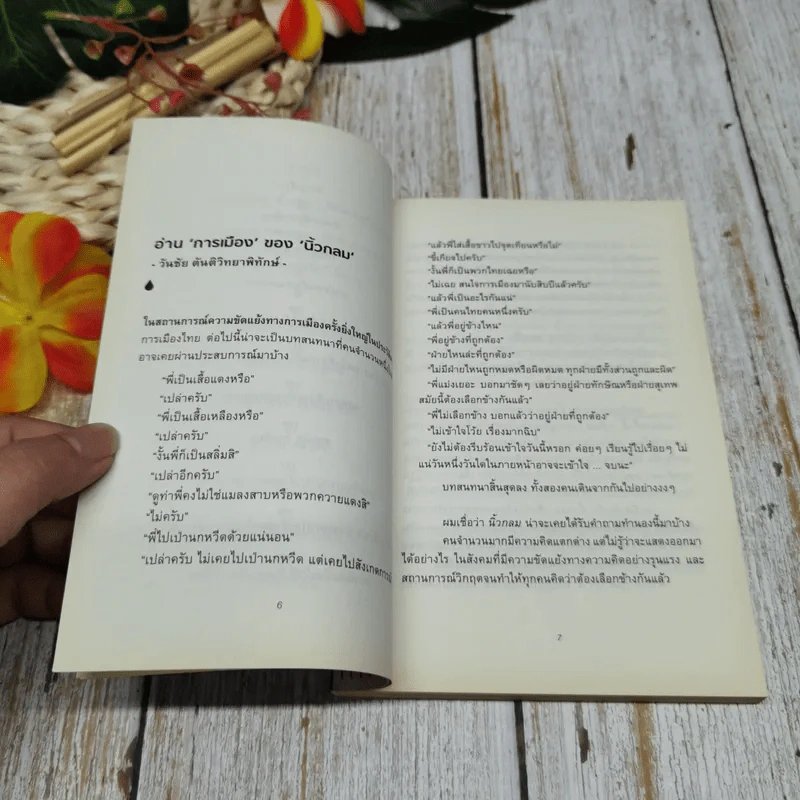 อ่าน 'การเมือง' ของ 'นิ้วกลม'
- วันชัย ตันติวิทยาพิทักษ์ -
ในสถานการณ์ความขัดแย้งทางการเมืองครั้งยิ่งใหญ่ในประวัติ
การเมืองไทย ต่อไปนี้น่าจะเป็นบทสนทนาที่คนจำนวนหนึ่ง
อาจเคยผ่านประสบการณ์มาบ้าง
"พี่เป็นเสื้อแดงหรือ"
"เปล่าครับ"
"พี่เป็นเสื้อเหลืองหรือ"
"เปล่าครับ"
"งั้นพี่ก็เป็นสลิ่มสิ"
"เปล่าอีกครับ"
"ดูท่าพี่คงไม่ใช่แมลงสาบหรือพวกควายแดงสิ"
"ไม่ครับ"
"พี่ไปเป่านกหวีดด้วยแน่นอน"
"เปล่าครับ ไม่เคยไปเป่านกหวีด แต่เคยไปสังเกตการณ์
6
"แล้วพี่ใส่เสื้อขาวไปจุดเทียนหรือไม่"
"ขี้เกียจไปครับ"
"งั้นพี่ก็เป็นพวกไทยเฉยหรือ"
"ไม่เฉย สนใจการเมืองมานับสิบปีแล้วครับ"
"แล้วพี่เป็นอะไรกันแน่"
"พี่เป็นคนไทยคนหนึ่งครับ"
"แล้วพี่อยู่ข้างไหน"
"พี่อยู่ข้างที่ถูกต้อง"
"ฝ่ายไหนล่ะที่ถูกต้อง"
"ไม่มีฝ่ายไหนถูกหมดหรือผิดหมด ทุกฝ่ายมีทั้งส่วนถูกและผิด"
"พี่แม่งเยอะ บอกมาชัดๆ เลยว่าอยู่ฝ่ายทักษิณหรือฝ่ายสุเทพ
สมัยนี้ต้องเลือกข้างกันแล้ว"
"พี่ไม่เลือกข้าง บอกแล้วว่าอยู่ฝ่ายที่ถูกต้อง"
"ไม่เข้าใจโว้ย เรื่องมากฉิบ"
"ยังไม่ต้องรีบร้อนเข้าใจวันนี้หรอก ค่อยๆ เรียนรู้ไปเรื่อยๆ ไม่
แน่วันหนึ่งวันใดในภายหน้าอาจจะเข้าใจ ... จบนะ"
บทสนทนาสิ้นสุดลง ทั้งสองคนเดินจากกันไปอย่างงงๆ
ผมเชื่อว่า นิ้วกลม น่าจะเคยได้รับคำถามทำนองนี้มาบ้าง
คนจำนวนมากมีความคิดแตกต่าง แต่ไม่รู้ว่าจะแสดงออกมา
ได้อย่างไร ในสังคมที่มีความขัดแย้งทางความคิดอย่างรุนแรง และ
สถานการณ์วิกฤตจนทำให้ทุกคนคิดว่าต้องเลือกข้างกันแล้ว
7